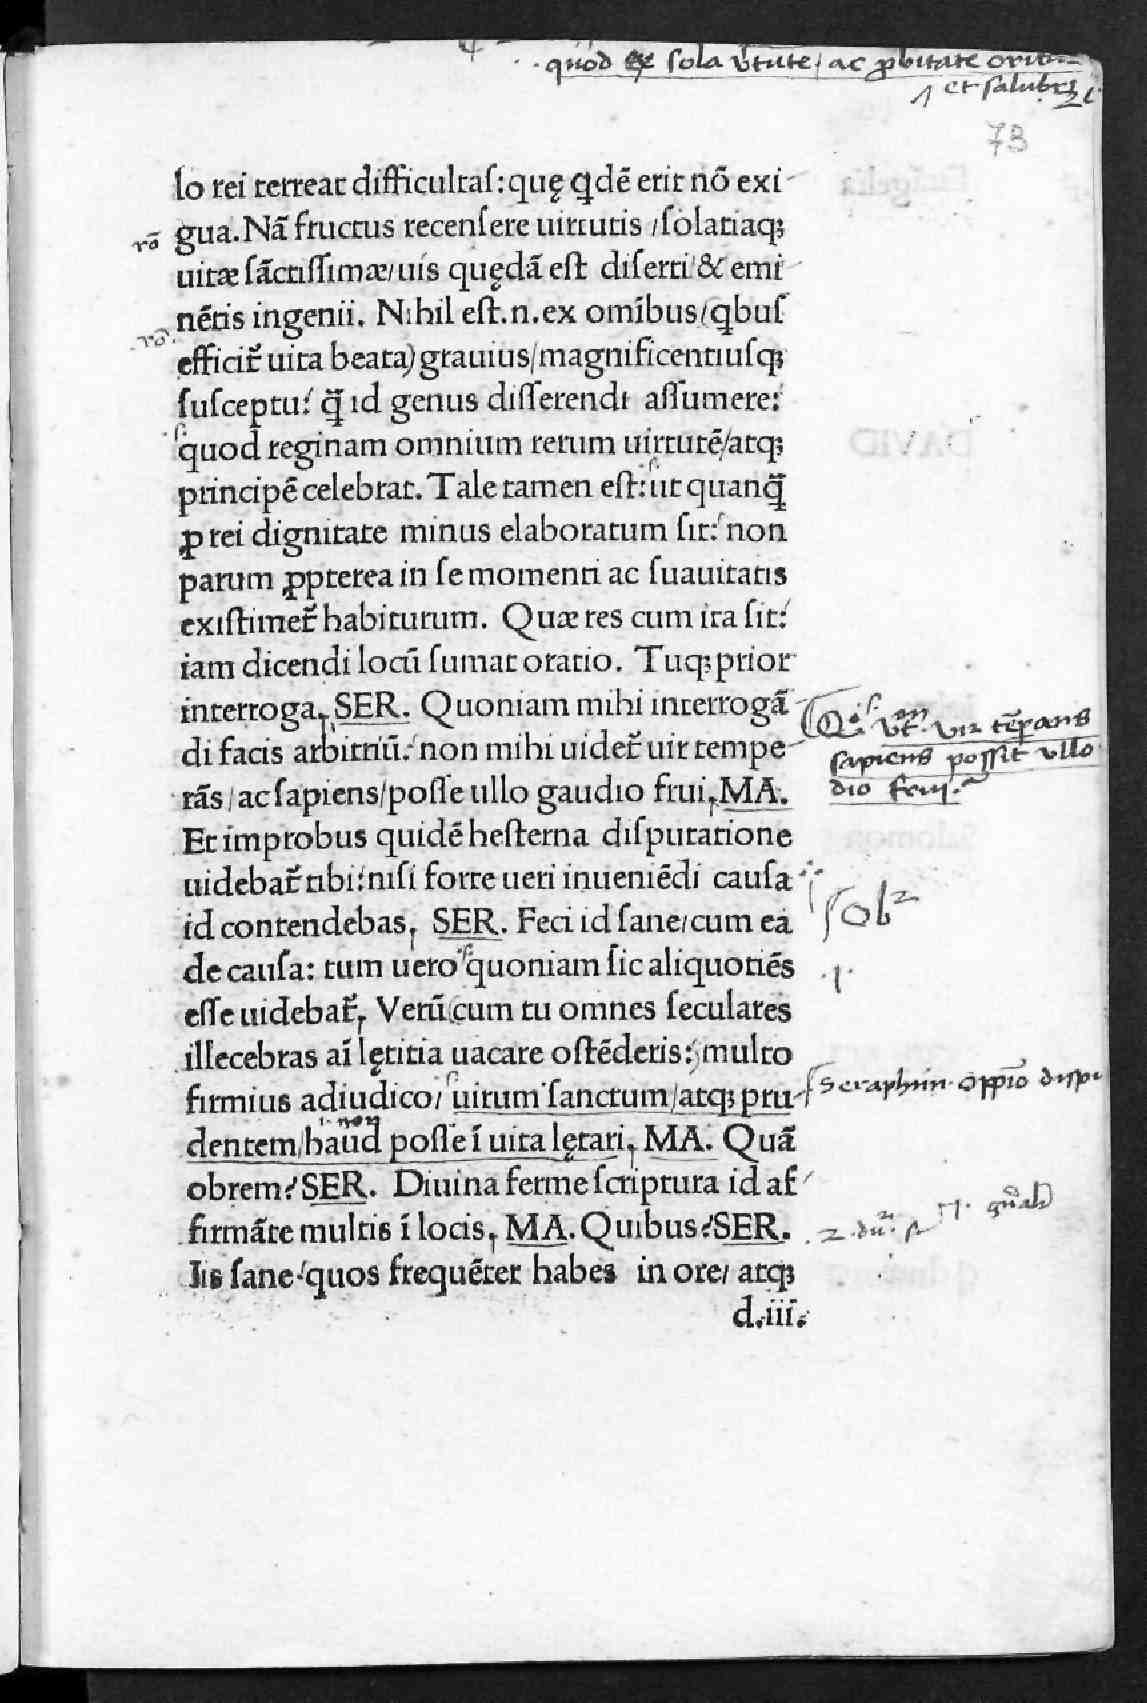 quod ex sola v̄tute / ac ꝓbitate
et salubri
73
ſo rei terreat difficultaſ: quę qͥdē erit nō exi
rō
gua. Nā fructus recenſere uirtutis / ſolatiaqꝫ
uitæ ſāctiſſimæ / uis quędā eſt diſerti & emi
nētis ingenii. Nihil eſt .n. ex omībus / qͥbuſ
rō
efficit᷑ uita beata) grauius / magnificentiuſqꝫ
ſuſceptu: qᷓ id genus diſſerendi aſſumere:
quod reginam omnium rerum uirtutē / atqꝫ
principē celebrat. Tale tamen eſt: ut quanqᷓ
ꝓ rei dignitate minus elaboratum ſit: non
parum ꝓpterea in ſe momenti ac ſuauitatis
exiſtimet᷑ habiturum. Quæ res cum ita ſit:
iam dicendi locū ſumat oratio. Tuqꝫ prior
interroga, SER. Quoniam mihi interrogā
di facis arbitriū: non mihi uidet᷑ uir tempe
rās / ac ſapiens / poſſe ullo gaudio frui, MA.
sapiens possit vllo
Et improbus quidē heſterna diſputatione
uidebat᷑ tibi: niſi forte ueri inueniēdi cauſa
id contendebas, SER. Feci id ſane / cum ea
ſolᵒ
de cauſa: tum uero quoniam ſic aliquotiēs
.1.
eſſe uidebat᷑, Verū cum tu omnes ſeculares
illecebras aī lętitia uacare oſtēderis: multo
firmius adiudico / uirum ſanctum / atqꝫ pru
Seraphin.
non
dentem / haud poſſe ī uita lętari, MA. Quā
obrem? SER. Diuina ferme ſcriptura id af
firmāte multis ī locis, MA. Quibus? SER.
Iis ſane: quos frequēter habes in ore / atqꝫ
d.iii.